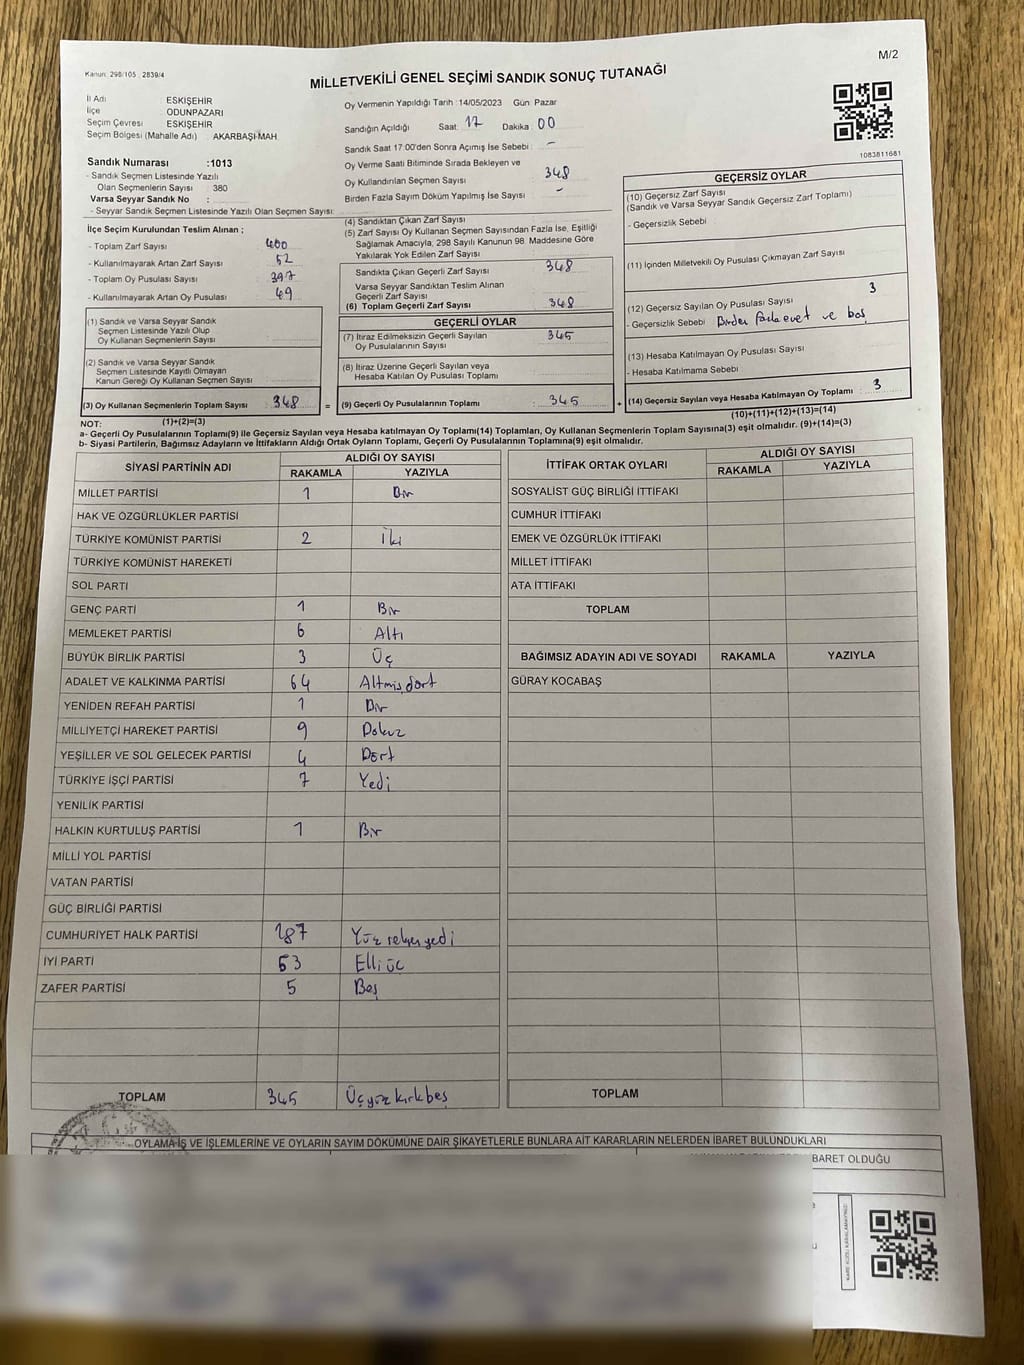 Kanun: 298/105 , 2839/4
M/2
MİLLETVEKİLİ GENEL SEÇİMİ SANDIK SONUÇ TUTANAĞI
İl Adı ESKİŞEHİR
İlçe ODUNPAZARI
Seçim Çevresi ESKİŞEHİR
Seçim Bölgesi (Mahalle Adı) AKARBAŞI MAH
Sandık Numarası :1013
- Sandık Seçmen Listesinde Yazılı
Olan Seçmenlerin Sayısı : 380
Varsa Seyyar Sandık No :
- Seyyar Sandık Seçmen Listesinde Yazılı Olan Seçmen Sayısı:
İlçe Seçim Kurulundan Teslim Alınan ;
- Toplam Zarf Sayısı : 400
- Kullanılmayarak Artan Zarf Sayısı : 52
- Toplam Oy Pusulası Sayısı : 397
- Kullanılmayarak Artan Oy Pusulası : 49
(1) Sandık ve Varsa Seyyar Sandık
Seçmen Listesinde Yazılı Olup
Oy Kullanan Seçmenlerin Sayısı :
(2) Sandık ve Varsa Seyyar Sandık
Seçmen Listesinde Kayıtlı Olmayan
Kanun Gereği Oy Kullanan Seçmen Sayısı :
(3) Oy Kullanan Seçmenlerin Toplam Sayısı : 348
(1)+(2)=(3)
Oy Vermenin Yapıldığı Tarih :14/05/2023 Gün Pazar
Sandığın Açıldığı Saat 17 Dakika 00
Sandık Saat 17:00'den Sonra Açımış İse Sebebi : -
Oy Verme Saati Bitiminde Sırada Bekleyen ve
Oy Kullandırılan Seçmen Sayısı : 348
Birden Fazla Sayım Döküm Yapılmış İse Sayısı : -
(4) Sandıktan Çıkan Zarf Sayısı :
(5) Zarf Sayısı Oy Kullanan Seçmen Sayısından Fazla İse, Eşitliği
Sağlamak Amacıyla, 298 Sayılı Kanunun 98. Maddesine Göre
Yakılarak Yok Edilen Zarf Sayısı :
Sandıkta Çıkan Geçerli Zarf Sayısı : 348
Varsa Seyyar Sandıktan Teslim Alınan
Geçerli Zarf Sayısı :
(6) Toplam Geçerli Zarf Sayısı : 348
GEÇERLİ OYLAR
(7) İtiraz Edilmeksizin Geçerli Sayılan
Oy Pusulalarının Sayısı : 345
(8) İtiraz Üzerine Geçerli Sayılan veya
Hesaba Katılan Oy Pusulası Toplamı :
= (9) Geçerli Oy Pusulalarının Toplamı : 345 +
1083811681
GEÇERSİZ OYLAR
(10) Geçersiz Zarf Sayısı
(Sandık ve Varsa Seyyar Sandık Geçersiz Zarf Toplamı) :
- Geçersizlik Sebebi :
(11) İçinden Milletvekili Oy Pusulası Çıkmayan Zarf Sayısı :
(12) Geçersiz Sayılan Oy Pusulası Sayısı : 3
- Geçersizlik Sebebi : Birden fazla evet ve boş
(13) Hesaba Katılmayan Oy Pusulası Sayısı :
- Hesaba Katılmama Sebebi :
(14) Geçersiz Sayılan veya Hesaba Katılmayan Oy Toplamı : 3
(10)+(11)+(12)+(13)=(14)
NOT:
a- Geçerli Oy Pusulalarının Toplamı(9) ile Geçersiz Sayılan veya Hesaba katılmayan Oy Toplam(14) Toplamları, Oy Kullanan Seçmenlerin Toplam Sayısına(3) eşit olmalıdır. (9)+(14)=(3)
b- Siyasi Partilerin, Bağımsız Adayların ve İttifakların Aldığı Ortak Oyların Toplamı, Geçerli Oy Pusulalarının Toplamına(9) eşit olmalıdır.
SİYASİ PARTİNİN ADI ALDIĞI OY SAYISI
RAKAMLA YAZIYLA
MİLLET PARTİSİ 1 Bir
HAK VE ÖZGÜRLÜKLER PARTİSİ
TÜRKİYE KOMÜNİST PARTİSİ 2 İki
TÜRKİYE KOMÜNİST HAREKETİ
SOL PARTİ
GENÇ PARTİ 1 Bir
MEMLEKET PARTİSİ 6 Altı
BÜYÜK BİRLİK PARTİSİ 3 Üç
ADALET VE KALKINMA PARTİSİ 64 Altmış dört
YENİDEN REFAH PARTİSİ 1 Bir
MİLLİYETÇİ HAREKET PARTİSİ 9 Dokuz
YEŞİLLER VE SOL GELECEK PARTİSİ 4 Dört
TÜRKİYE İŞÇİ PARTİSİ 7 Yedi
YENİLİK PARTİSİ
HALKIN KURTULUŞ PARTİSİ 1 Bir
MİLLİ YOL PARTİSİ
VATAN PARTİSİ
GÜÇ BİRLİĞİ PARTİSİ
CUMHURİYET HALK PARTİSİ 187 Yüz seksen yedi
İYİ PARTİ 53 Elli üç
ZAFER PARTİSİ 5 Beş
TOPLAM 345 Üçyüz kırkbeş
İTTİFAK ORTAK OYLARI ALDIĞI OY SAYISI
RAKAMLA YAZIYLA
SOSYALİST GÜÇ BİRLİĞİ İTTİFAKI
CUMHUR İTTİFAKI
EMEK VE ÖZGÜRLÜK İTTİFAKI
MİLLET İTTİFAKI
ATA İTTİFAKI
TOPLAM
BAĞIMSIZ ADAYIN ADI VE SOYADI RAKAMLA YAZIYLA
GÜRAY KOCABAŞ
TOPLAM
OYLAMA İŞ VE İŞLEMLERİNE VE OYLARIN SAYIM DÖKÜMÜNE DAİR ŞİKAYETLERLE BUNLARA AİT KARARLARIN NELERDEN İBARET BULUNDUKLARI
BARET OLDUĞU